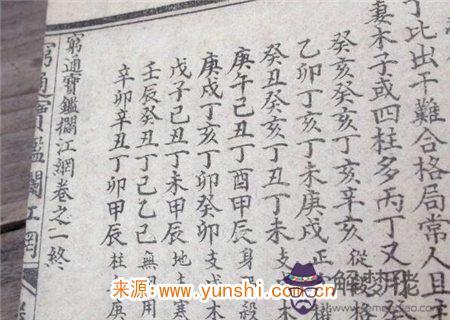 丁比出干難合格局常人且主
妻木子或四柱多丙丁又子
癸亥癸亥丁亥辛亥從
乙卯丁亥丁未庚戌正
癸丑癸亥丁丑癸支
庚午己丑丁酉甲辰身
庚戌丁亥丁卯癸卯支成木
戊子己丑丁未甲辰地支
壬辰癸丑丁巳乙巳無用
辛卯辛丑丁卯甲辰柱
窮通寶鑑攔江網卷之一終
窮通寶鑑攔江網
来源:www.yunshi.com.cn
解梦佬